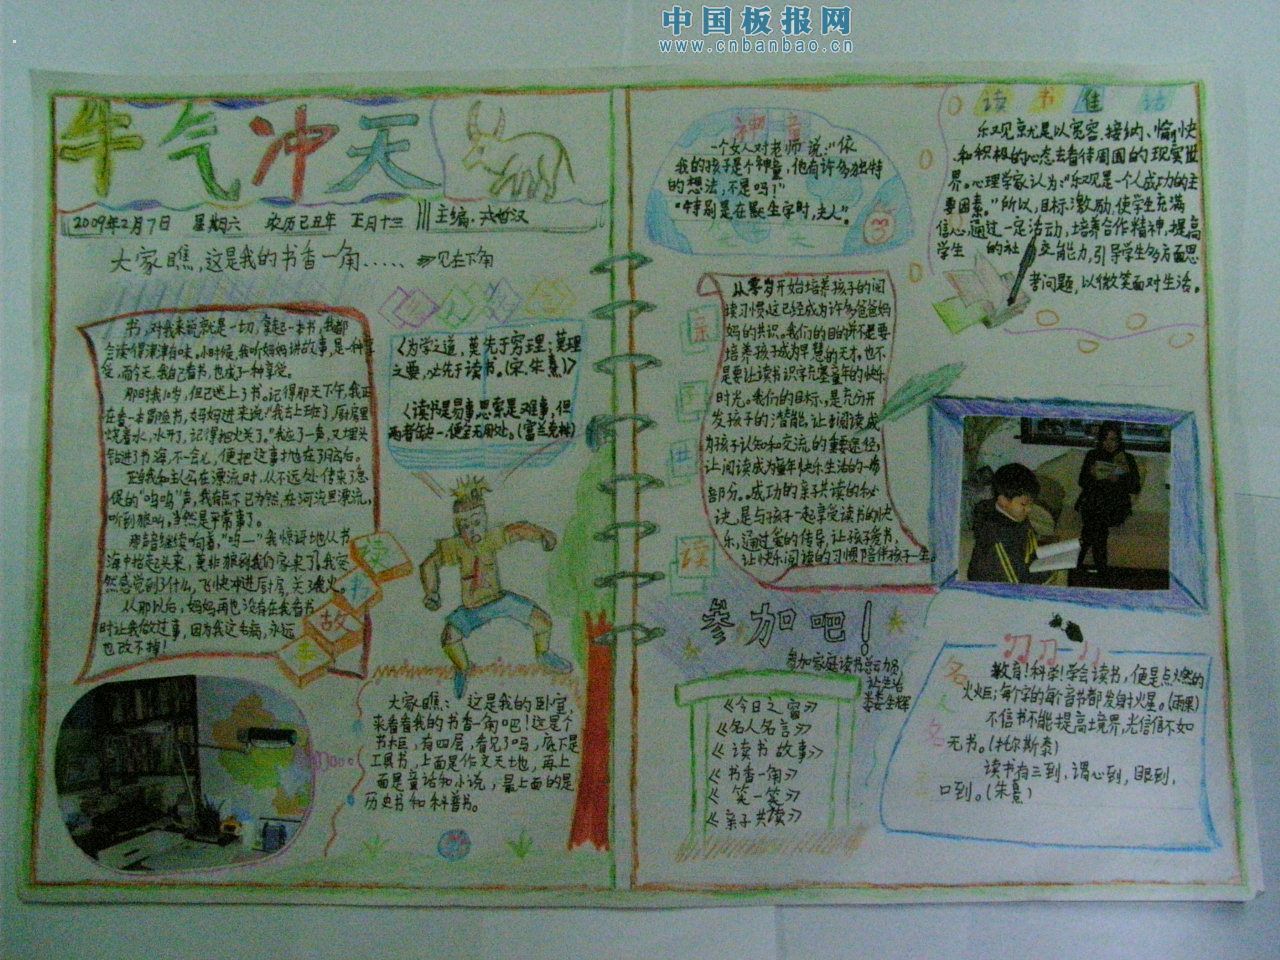 中国板报网
www.cnbanbao.cn
牛气冲天
2009年2月7日 星期六 农历己丑年 正月十三
主编:
大家瞧,这是我的书香一角…… 见在下角
书,对我来说就是一切,拿起一本书,我都
会读得津津有味。小时候,我听妈妈讲故事,是一种享
受,而今天,我自己看书,也成了一种享受。
那时我10岁,但已迷上了书。记得那天下午,我正
在看一本冒险书,妈妈进来说:“我去上班了,厨房里
烧着水,水开了,记得把火关了。”我应了一声,又埋头
钻进了书海,不一会儿,便把这事忘在了脑后。
正当我和主人公在漂流时,从不远处传来了急
促的“呜呜”声,我有点不以为然,在河流里漂流,
听到狼叫,当然是平常事了。
那声音继续响着,“呜—”我惊讶地从书
海中抬起头来,莫非狼到我们家来了?我突
然感觉到了什么,飞快冲进厨房,关了火。
从那以后,妈妈再也没有在我看书
时让我做过事,因为我这毛病,永远
也改不掉!
读书故事
《为学之道,莫先于穷理;莫理
之要,必先于读书。(宋·朱熹)》
《读书是易事思索是难事,但
两者缺一,便全无用处。(富兰克林)
大家瞧:这是我的卧室,
来看看我的书香一角吧!这是个
书柜,有四层,看见了吗,底下是
工具书,上面是作文天地,再上
面是童话和小说,最上面的是
历史书和科普书。
神童
一个女人对老师说:“依
我的孩子是个神童,他有许多独特
的想法,不是吗!”
“特别是在默生字时,夫人”。
读书佳话
乐观就是以宽容、接纳、愉快
和积极的心态去看待周围的现实世
界。心理学家认为:“乐观是一个人成功的主
要因素。”所以,目标激励,使学生充满
信心通过一定活动,培养合作精神,提高
学生 的社交能力,引导学生多方面思
考问题,以微笑面对生活。
亲子共读
从零岁开始培养孩子的阅
读习惯,这已经成为许多爸爸妈
妈的共识。我们的目的并不是要
培养孩子成为早慧的天才,也不
是要让读书识字充塞童年的快乐
时光。我们的目标,是充分开
发孩子的潜能,让阅读成
为孩子认知和交流的重要途径,
让阅读成为童年快乐生活的一
部分。成功的亲子共读的秘
诀,是与孩子一起享受读书的快
乐,通过爱的传导,让孩子爱书,
让快乐阅读的习惯陪伴孩子一生。
参加吧!
参加家庭读书活动
让生活
更生辉
《今日之窗》
《名人名言》
《读书故事》
《书香一角》
《笑一笑》
《亲子共读》
名人名言
教育!科学!学会读书,便是点燃
火炬;每个字的每个音节都发射火星。(雨果)
不信书不能提高境界,光信信不如
无书。(托尔斯泰)
读书有三到,谓心到,眼到,
口到。(朱熹)